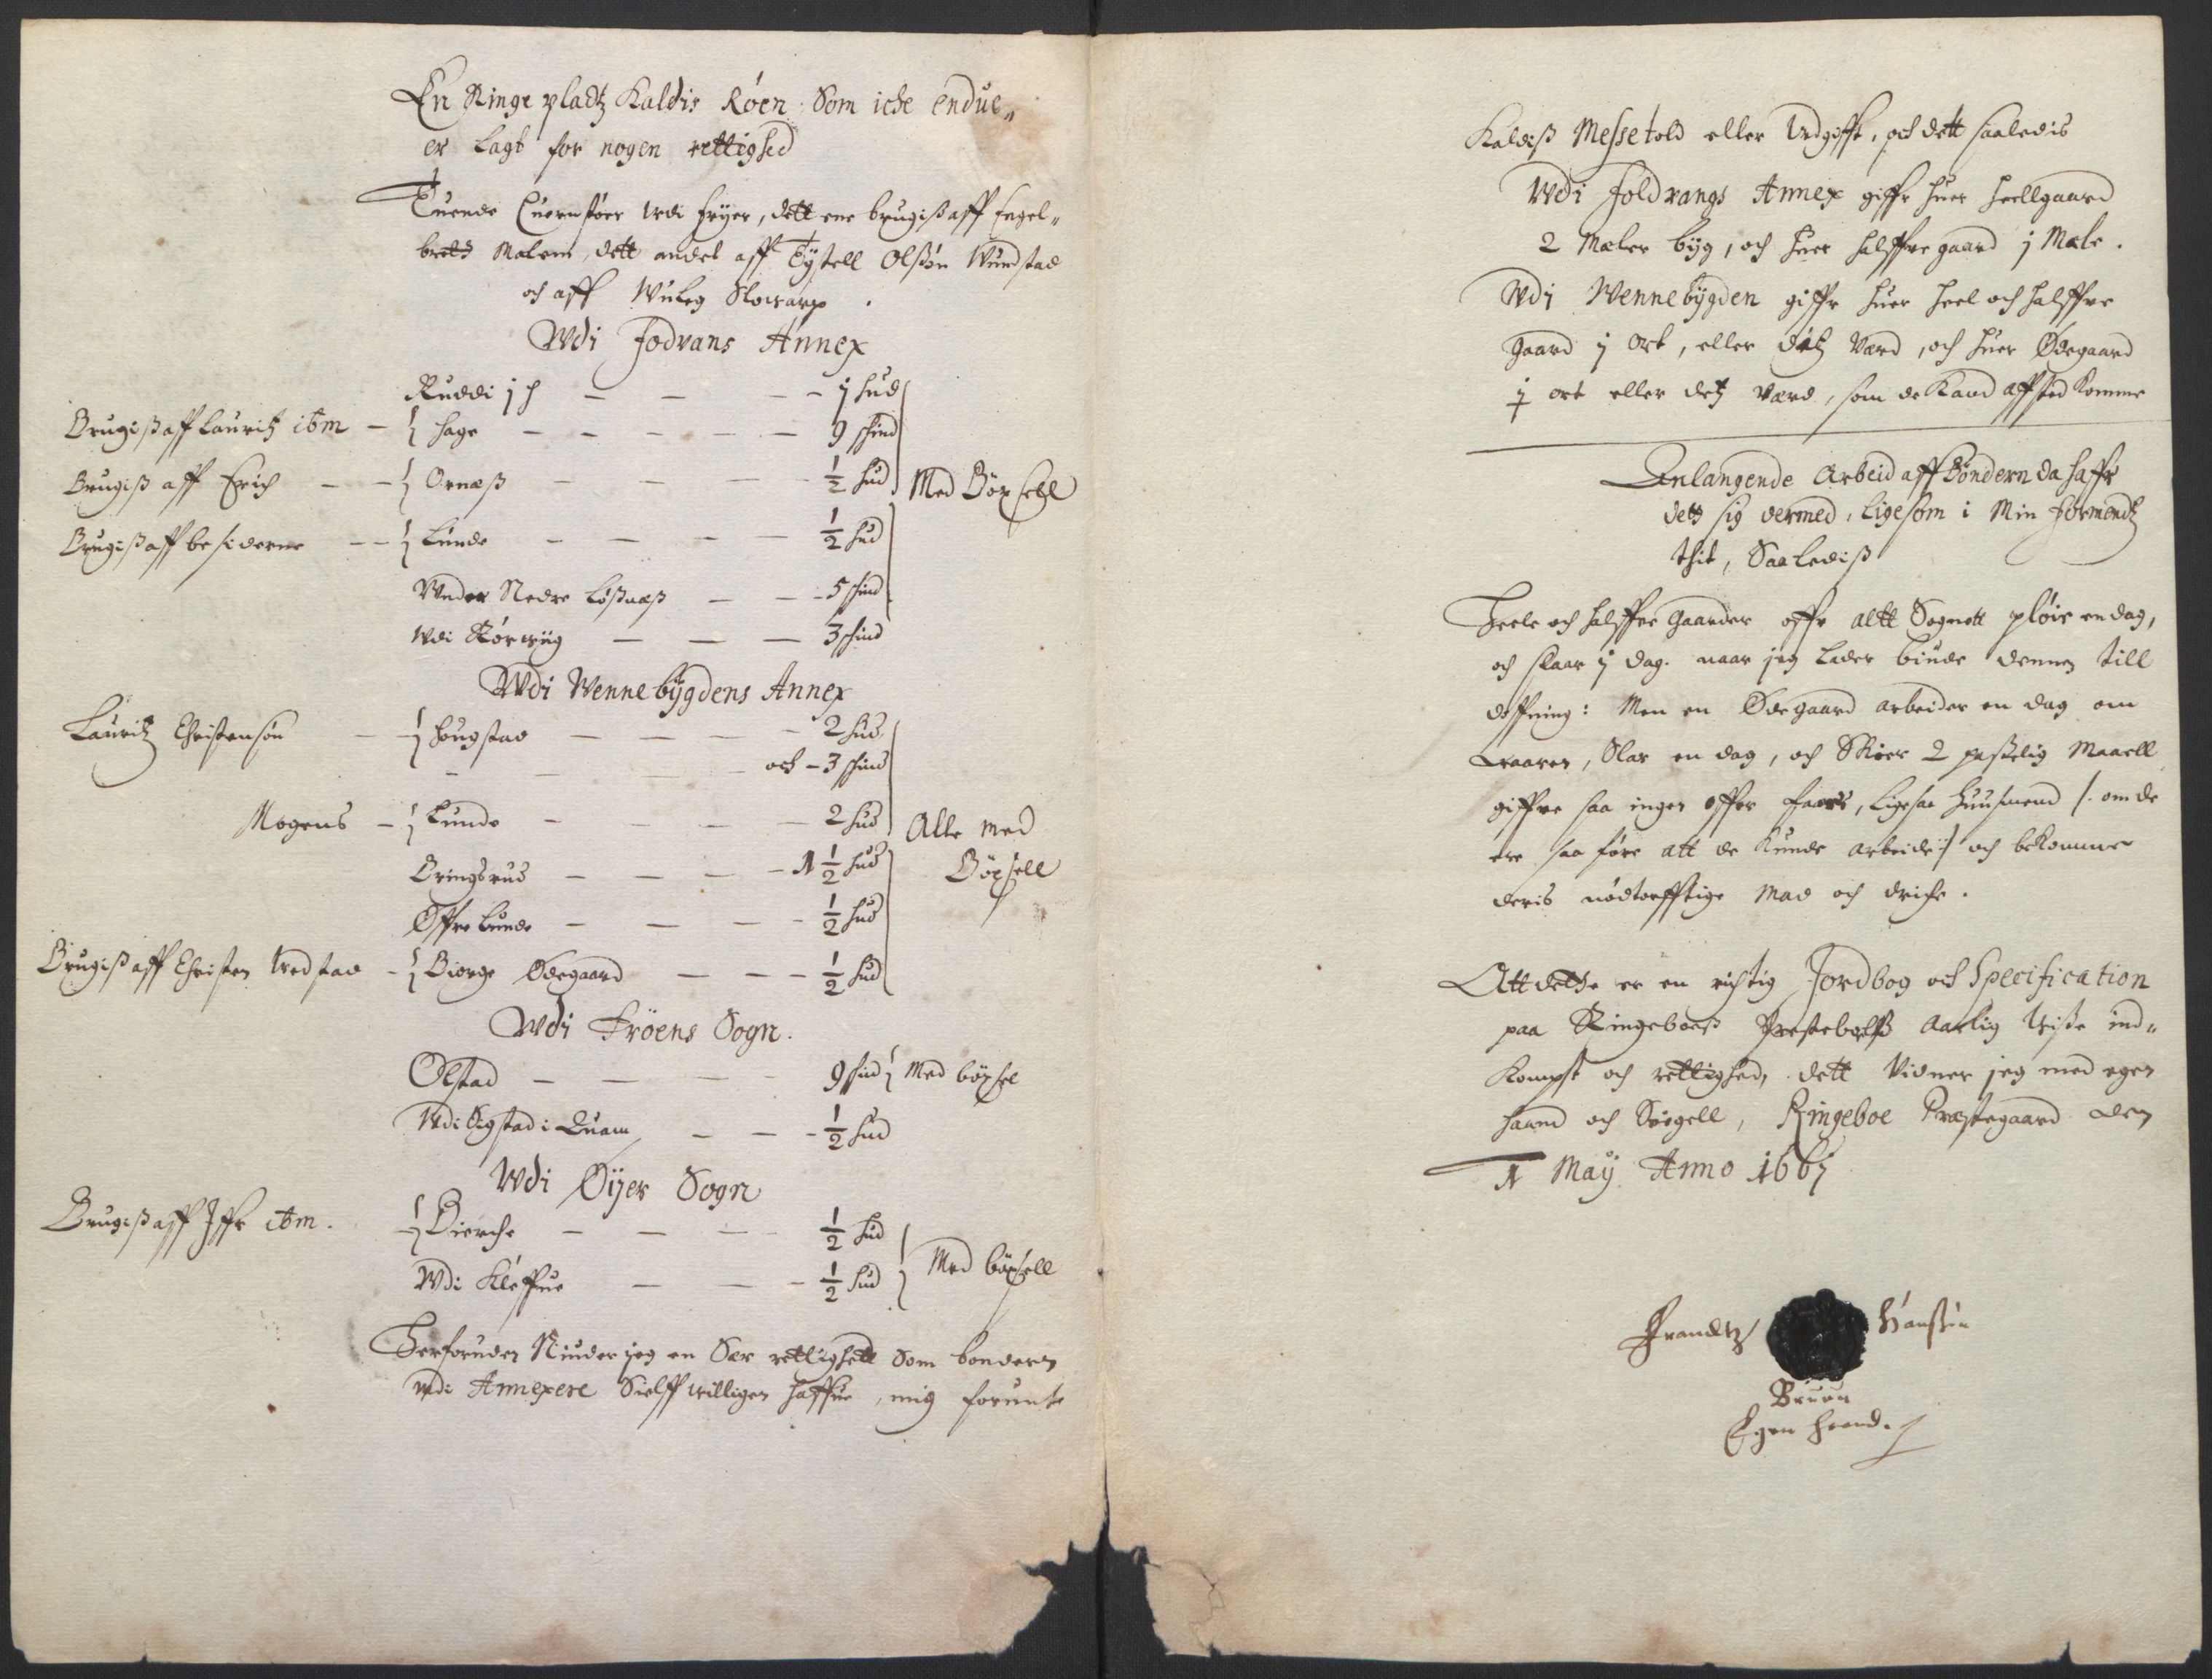 En Ringe pladtz Kaldis Röen, Som iche endue„
er Lagt for nogen rettighed
Tuende Quernföer udi Fryer, dett ene brugiß aff Engel„
bret, dett andet aff Tÿstell Olßön Wundstad
och aff
Wdi Fodvans Annex
Ruddi j h — — — j hud
Brugiß aff Lauritz ibm — Hage — — — — — 9 skind
Brugiß aff Erich — — Ornæß — — — — ½ hud Med Böxsell
Brugiß aff besidderne — — Lunde — — — — ½ hud
Under Nedre Lößnæß — — 5 skind
Udi Körwiig — — — 3 skind
Wdi Wennebÿgdens Annex
Lauritz Christensön — Hougstad — — — — 2 hud
och — 3 skind
Mogens — Lunde — — — — 2 hud Alle med
Bringsrud — — — — 1 ½ hud Böxsell
Öffre Lunde — — — — ½ hud
Brugiß aff Christen Vedstad — Biorge Ödegaard — — — ½ hud
Wdi Fröens Sogn.
Olstad — — — — 9 skind Med böxsel
Wdi Sigstad i Quam — — — ½ hud
Wdi Öÿer Sogn
Brugiß aff Iffr ibm. Bierche — — — ½ hud
Wdi Kleffue — — — ½ hud Med böxsell
Herforuden Niuder jeg en Sær rettighedt Som bonderen
udi Annexere Sielff willigen haffue, mig forunte
Kaldiß Messetold eller Udgifft, och dett saaledis
Wdi Foldvangs Annex giffr huer heellgaard
2 Mæler bÿg, och huer halffue gaard j Mæle.
Wdi Wennebÿgden giffr huer heel och halffue
gaard j ort, eller detz Værd, och huer Ödegaard
j ort eller detz Værd, som de Kand affsted Komme
Anlangende Arbeid aff Bönderne da haffr
dett sig dermed, Ligesom i Min Formandtz
thid, Saalediß
Heele och halffue Gaarder offr altt Sognett plöie en dag,
och skaar j dag. naar jeg Lader biude dennem till
døffning: Men en Ödegaard arbeider en dag om
Waaren, Slar en dag, och Skier 2 Maell
giffue saa ingen offer, Ligesaa Huusmend /: om de
ere saa före att de Kunde arbeide :/ och bekomme
deris nödtorfftige Mad och driche.
Att dette er en richtig Jordbog och Specification
paa Ringeboeß Prestebolß Aarlig Visse ind„
Kompst och rettighed, dett Vidner jeg med egen
haand och Sigell, Ringeboe Præstegaard den
1 Maÿ Anno 1661
Frandtz Hanssön
Bruun
Egen haand.